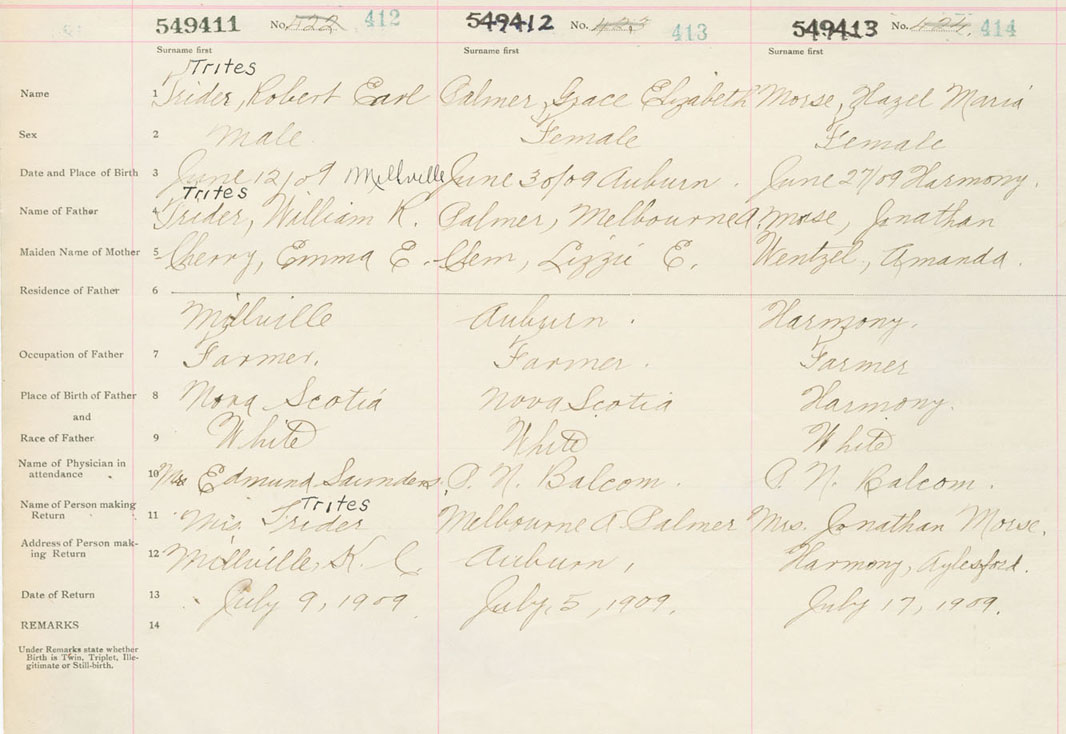 549411 No. 422 412 549412 No. 423 413 549413 No. 424 414
Surname first Surname first Surname first
Trites
Name 1 Trider, Robert Earl Palmer, Grace Elizabeth Morse, Hazel Maria
Sex 2 Male. Female Female
Date and Place of Birth 3 June 12/09 Millville June 30/09 Auburn. June 27/09 Harmony.
Trites
Name of Father 4 Trider, William R. Palmer, Melbourne A. Morse, Jonathan
Maiden Name of Mother 5 Cherry, Emma E. Clem, Lizzie E. Wentzel, Amanda.
Residence of Father 6
Millville Auburn. Harmony.
Occupation of Father 7 Farmer. Farmer. Farmer
Place of Birth of Father 8 Nova Scotia Nova Scotia Harmony.
and
Race of Father 9 White White White
Name of Physician in
attendance 10 Mrs Edmund Saunders. P. N. Balcom. P. N. Balcom.
Trites
Name of Person making
Return 11 Mrs. Trider Melbourne A Palmer Mrs. Jonathan Morse.
Address of Person mak-
ing Return 12 Millville, K. C. Auburn, Harmony, Aylesford.
Date of Return 13 July 9, 1909 July, 5, 1909. July 17, 1909.
REMARKS 14
Under Remarks state whether
Birth is Twin, Triplet, Ille-
gitimate or Still-birth.